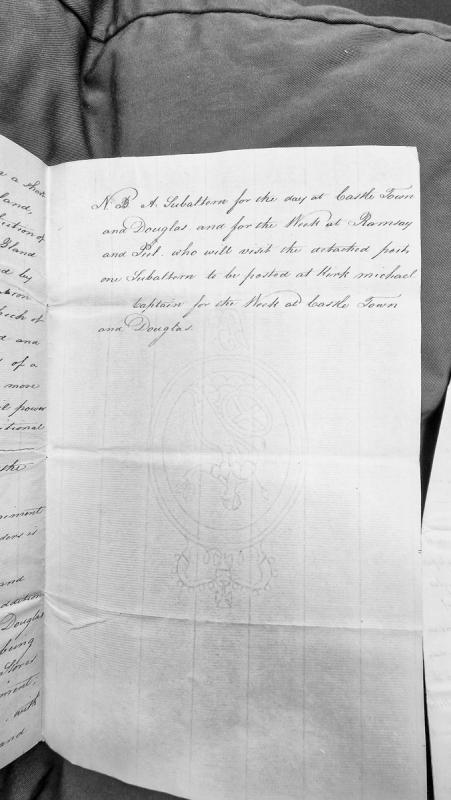 a
land,
Island
d by
check of
d and
of a
more
power
itional
the
and
addition
Douglas
being
Stores
ment,
with
and
N B A Subaltern for the day at Castle Town
and Douglas and for the Week at Ramsay
and Peel. who will visit the detached posts,
one Subaltern to be posted at Kirk michael
Captain for the Week at Castle Town
and Douglas.